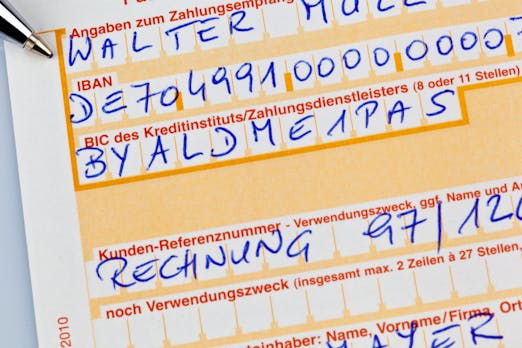 Angaben zum Zahlungsempfänger
WALTER MÜLL
IBAN
DE7049910000000
BIC des Kreditinstituts/Zahlungsdienstleisters (8 oder 11 Stellen)
BYALDME1PAS
Kunden-Referenznummer - Verwendungszweck, ggf. Name und
RECHNUNG 97/12
noch Verwendungszweck (insgesamt max. 2 Zeilen à 27 Stellen,
inhaber: Name, Vorname/Firma, Ort
MAYER
2010